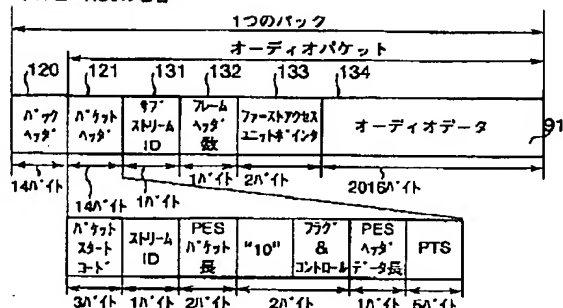 1つのパック
オーディオパケット
120 121 131 132 133 134
パック
ヘッダ
パケット
ヘッダ
サブ
ストリーム
ID
フレーム
ヘッダ
数
ファーストアクセス
ユニットポインタ
オーディオデータ
91
14バイト 14バイト 1バイト 1バイト 2バイト 2016バイト
パケット
スタート
コード
ストリーム
ID
PES
パケット
長
"10"
フラグ
&
コントロール
PES
ヘッダ
データ長
PTS
3バイト 1バイト 2バイト 2バイト 1バイト 5バイト